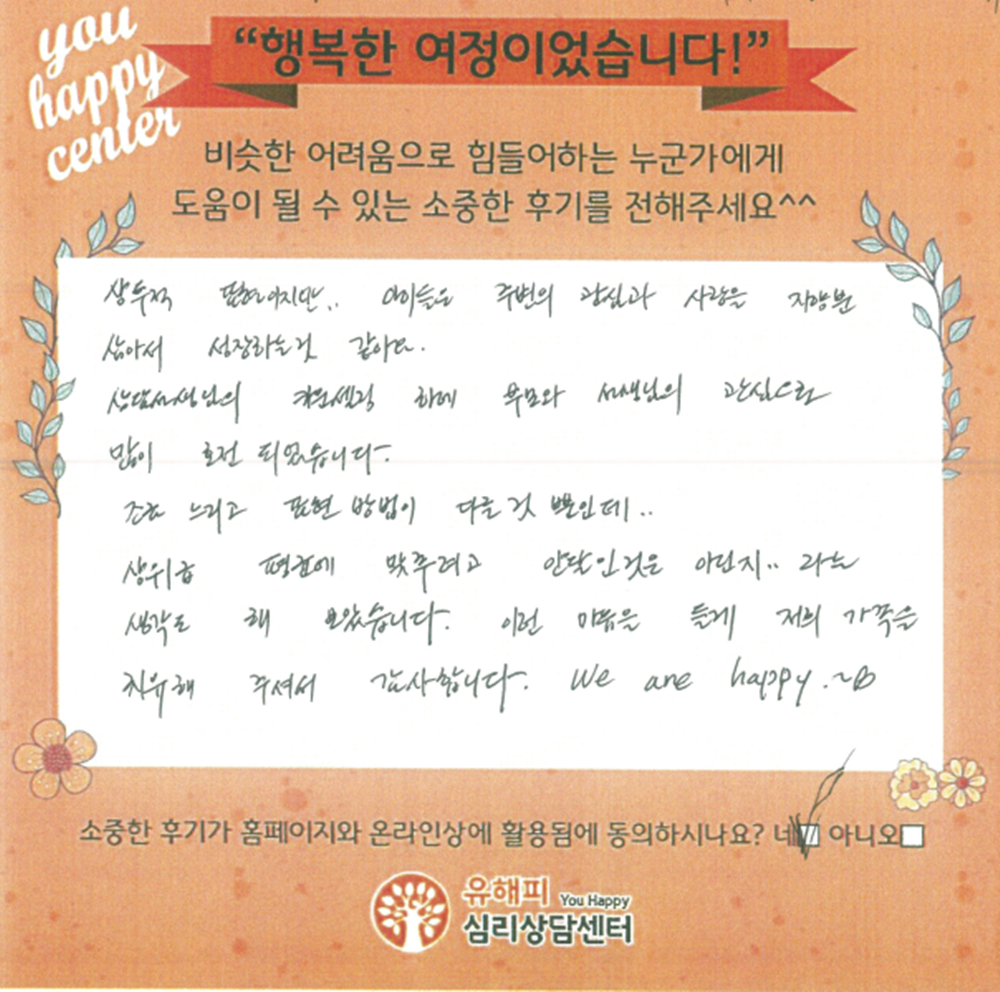 you
happy
center
“행복한 여정이었습니다!”
비슷한 어려움으로 힘들어하는 누군가에게
도움이 될 수 있는 소중한 후기를 전해주세요^^
상투적 표현이지만.. 아이들은 주변의 관심과 사랑을 자양분
삼아서 성장하는것 같아요.
상담선생님의 카운셀링 하에 부모와 선생님의 관심으로
많이 호전 되었습니다.
조금 느리고 표현 방법이 다를 것 뿐인데..
상위급 평균에 맞추려고 안달인것은 아닌지.. 라는
생각도 해 보았습니다. 이런 마음을 들게 저희 가족을
치유해 주셔서 감사합니다. We are happy.~
소중한 후기가 홈페이지와 온라인상에 활용됨에 동의하시나요? 네 아니오
유해피 You Happy
심리상담센터